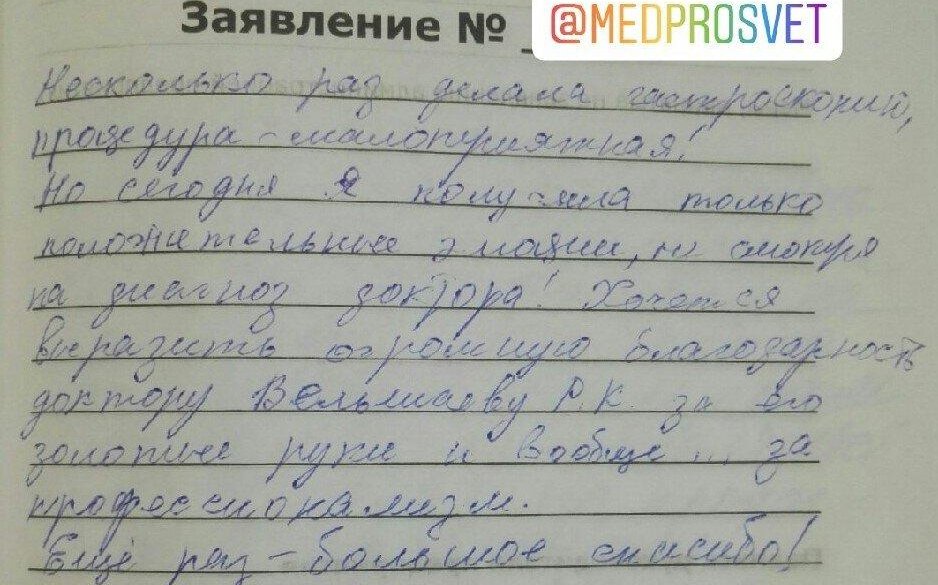 Заявление № _
@MEDPROSVET
Несколько раз делала гастроскопий,
процедура - малоприятная!
Но сегодня я получила только
положительные эмоции, не смотря
на диагноз доктора! Хочется
выразить огромную благодарность
доктору Вельмаеву Р.К. за его
золотые руки и вообще ... за
профессионализм.
Ещё раз - большое спасибо!